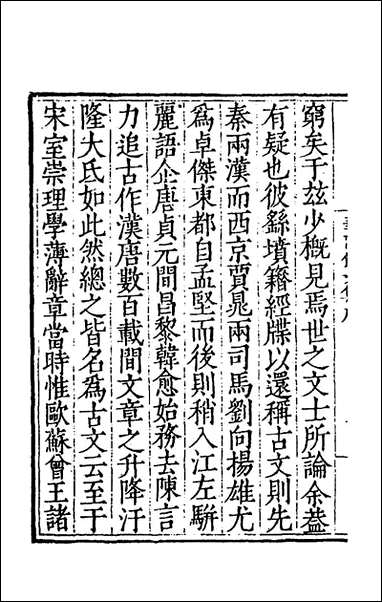 窮矣于玆少槪見焉世之文士所論余葢
有疑也彼繇墳籍經牒以還稱古文則先
秦兩漢而西京賈晁兩司馬劉向揚雄尤
爲卓傑東都自孟堅而後則稍入江左駢
麗語企唐貞元間昌黎韓愈始務去陳言
力追古作漢唐數百載間文章之升降汙
隆大氐如此然總之皆名爲古文云至于
宋室崇理學薄辭章當時惟歐蘇曾王諸